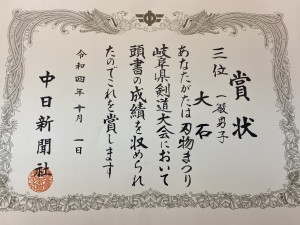 賞状
三位 一般男子
大石
あなたがたは刃物まつり
岐阜県剣道大会において
頭書の成績を収められ
たのでこれを賞します
令和四年十月一日
中日新聞社